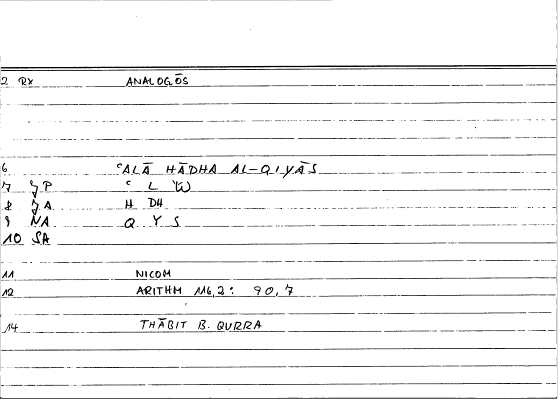 2 RX ANALOGŌS
6 ʿALĀ HĀDHA AL-QIYĀS
7 JP ʿ L W̄
8 JA H DH
9 NA Q Y S
10 SA
11 NICOM
12 ARITHM 116,2: 90,7
14 THĀBIT B. QURRA